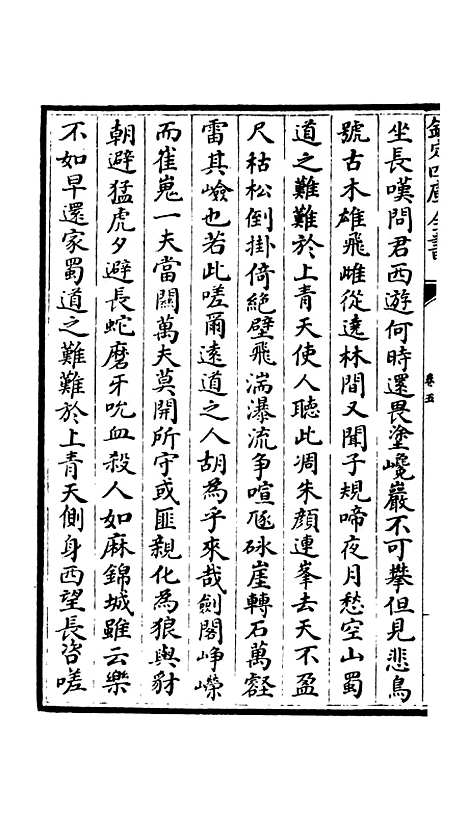 欽定四庫全書
卷五
坐長嘆問君西遊何時還畏塗巉巖不可攀但見悲鳥
號古木雄飛雌從遶林間又聞子規啼夜月愁空山蜀
道之難難於上青天使人聽此凋朱顏連峯去天不盈
尺枯松倒掛倚絶壁飛湍瀑流争喧豗砯崖轉石萬壑
雷其嶮也若此嗟爾遠道之人胡為乎來哉劍閣崢嶸
而崔嵬一夫當關萬夫莫開所守或匪親化為狼與豺
朝避猛虎夕避長蛇磨牙吮血殺人如麻錦城雖云樂
不如早還家蜀道之難難於上青天側身西望長咨嗟